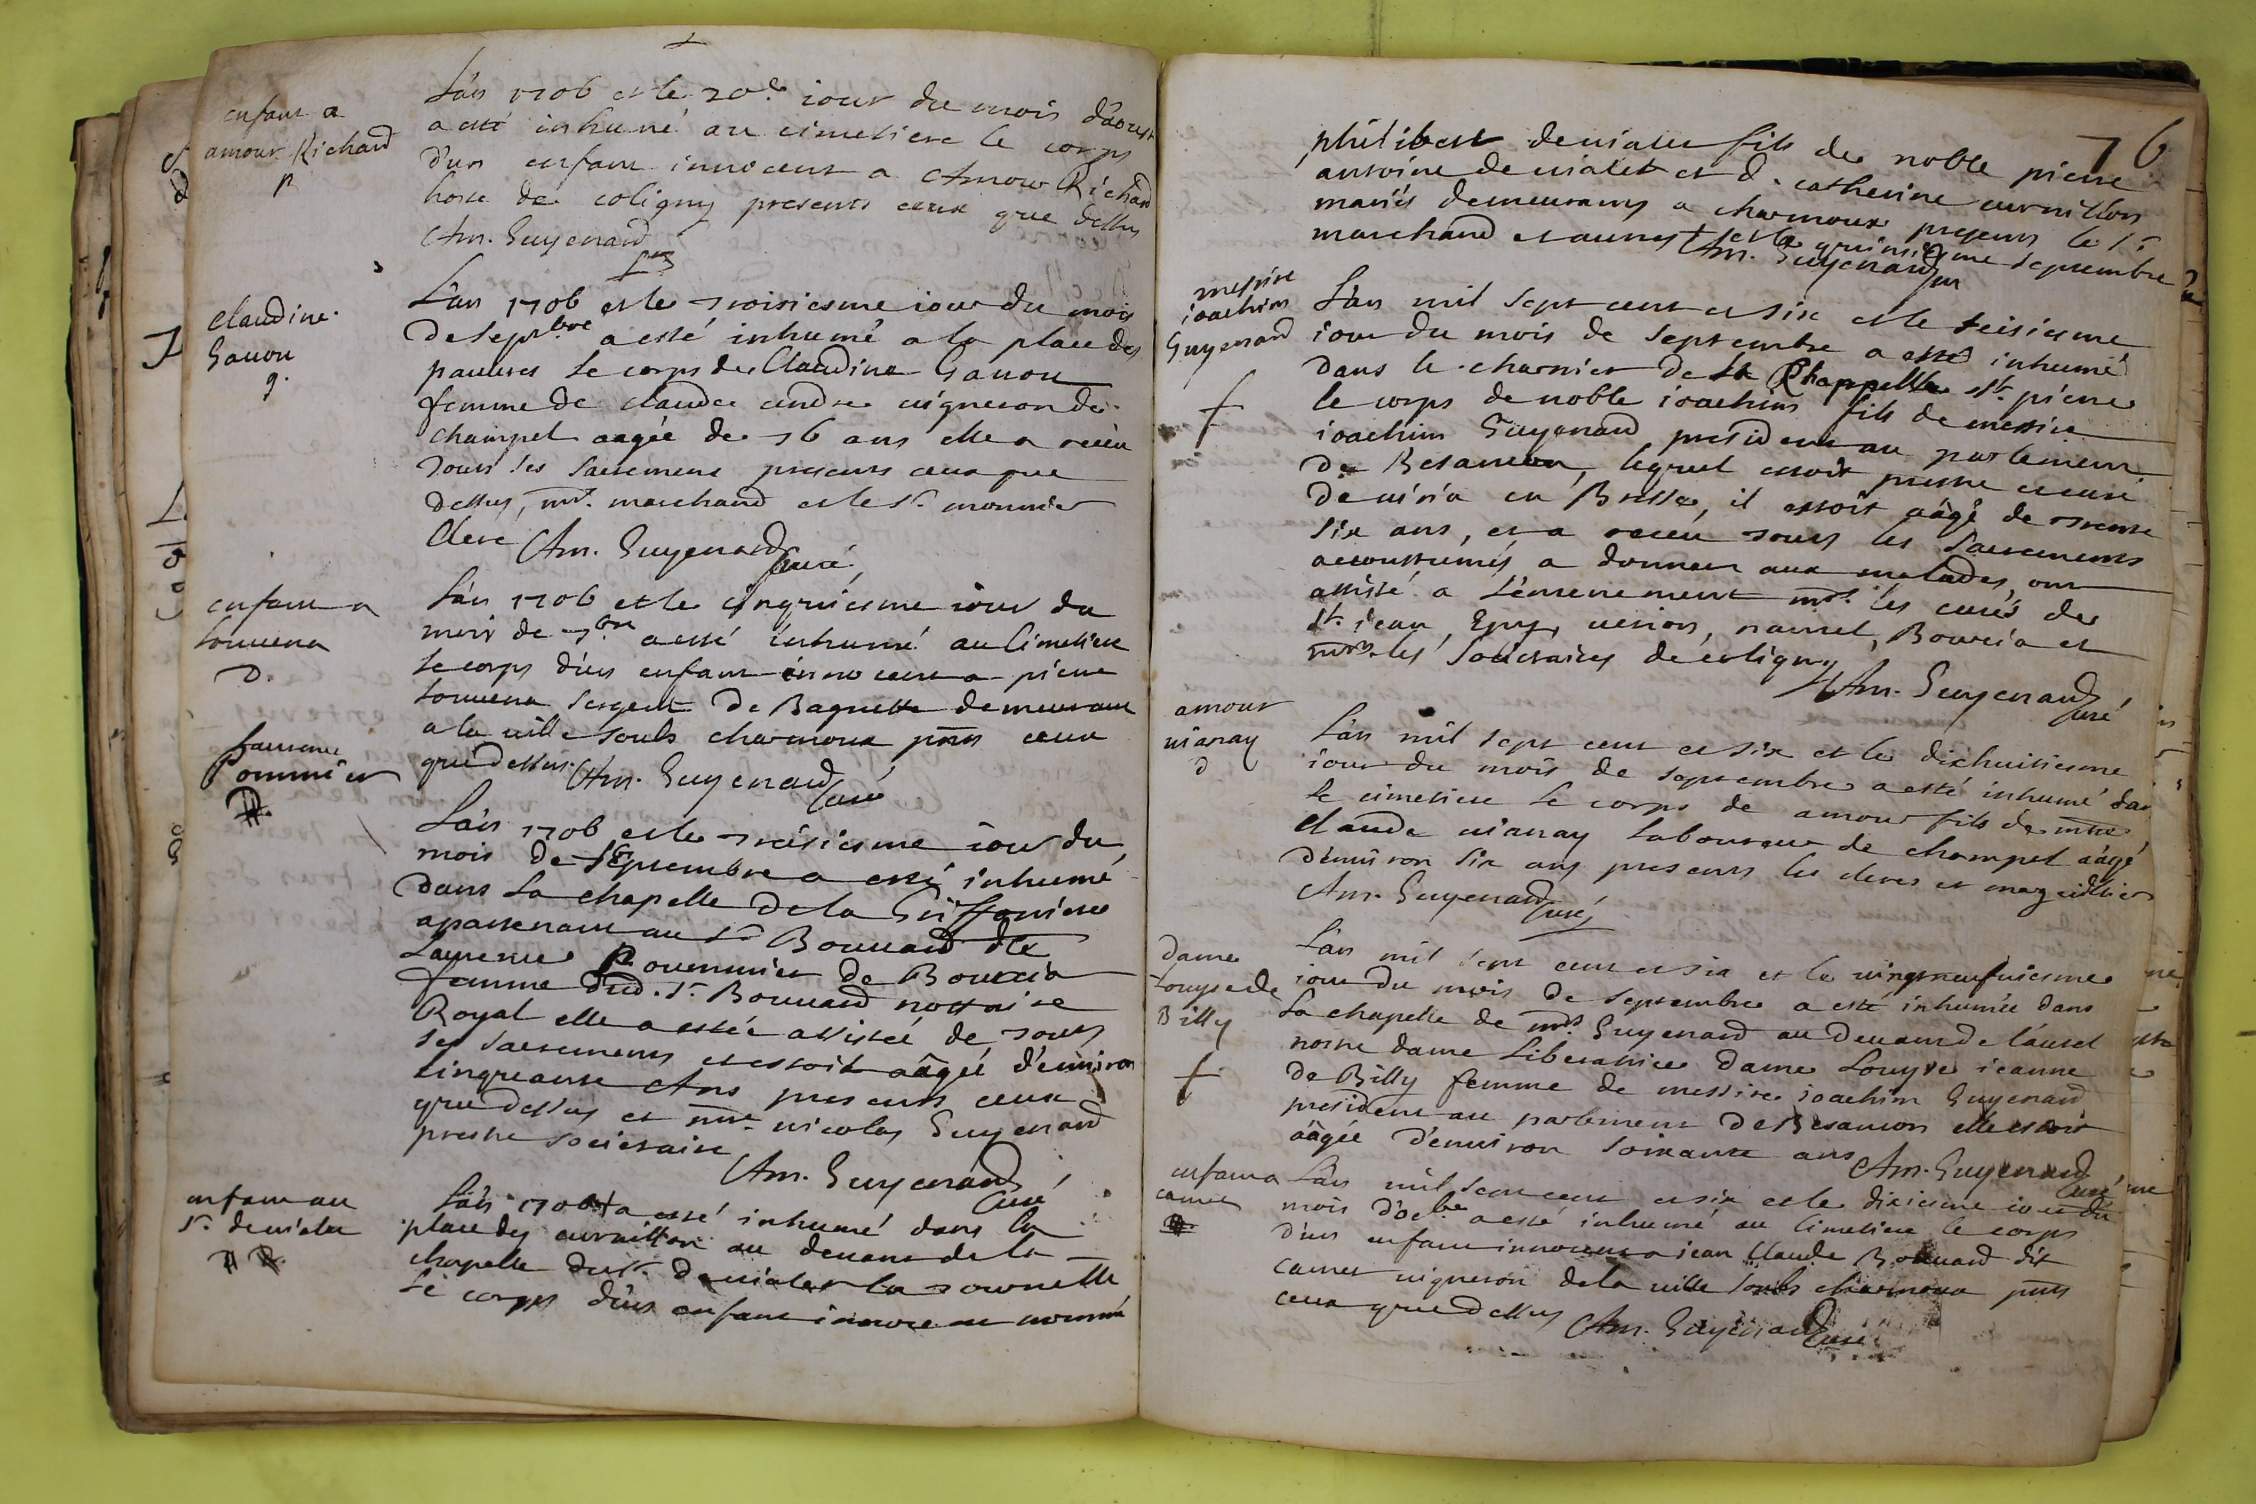 enfant a
amour Richard
p
L'an 1706 et le 20e. iour du mois d'aoust
a esté inhumé au cimetiere le corps
d'un enfant innocent a Amour Richard
hoste de coligny presents ceux que dessus
Am. Guyenard
Claudine.
Gauon
g.
L'an 1706 et le troisiesme iour du mois
de septbre a esté inhumé a la place des
pauures le corps de Claudine Gauon
femme de claude andre uigneron de
champel aagée de 76 ans elle a receu
tous ses sacremens presents ceux que
dessus, mre. marchand et le sr. monnier
clerc Am. Guyenard curé
enfant a
touuena
D.
L'an 1706 et le cinquiesme iour du
mois de 7bre a esté inhumé au Cimetiere
le corps d'un enfant innocent a pierre
touuena sergent de Bagnette demeurant
a la uille soubs charmoux pnts ceux
que dessus. Am. Guyenard curé
Laurence
Pommier
L'an 1706 et le treisiesme iour du
mois de septembre a esté inhumé
dans la chapelle de la Griffoniere
apartenant au sr Bouuard dlle
Laurence Pommier de Bourcia
femme dud. sr. Bouuard nottaire
Royal elle a estée assistée de tous
ses sacremens et estoit aâgée d'enuiron
cinquante Ans presents ceux
que dessus et mre. nicolas Guyenard
prestre societaire
Am. Guyenard curé
enfant au
sr. deuialet
L'an 1706 + a esté inhumé dans la
place des curnillon au deuant de la
chapelle du sr. deuialet la tournelle
le corps d'un enfant innocent nommé
76
philibert deuialet fils de noble pierre
antoine deuialet et d. catherine curnillon
mariés demeurants a charmoux presents le sr.
marchand et autres + et le quinsiesme septembre
Am. Guyenard
messire
ioachim
Guyenard
L'an mil sept cent et six et le seisiesme
iour du mois de septembre a esté inhumé
dans le charnier de la Chappelle st. pierre
le corps de noble ioachim fils de messire
ioachim Guyenard president au parlement
de Besancon, lequel estoit prestre et curé
de uiria en Bresse, il estoit aâgé de trente
six ans, et a receu tous les sacrements
accoustumés a donner aux malades, ont
assisté a l'enterrement mrs. les curés de
st. jean, Epy, uerion, nantel, Bourcia et
mrs les societaires de coligny
Am. Guyenard curé
amour
uianay
d
L'an mil sept cent et six et le dixhuitiesme
iour du mois de septembre a esté inhumé dans
le cimetiere le corps de amour fils de mtre
Claude uianay laboureur de champel aâgé
d'enuiron six ans presents les clercs et marguillier
Am. Guyenard curé
Dame
Louyse de
Billy
L'an mil sept cent et six et le uingtneufuiesme
iour du mois de septembre a esté inhumée dans
la chapelle de mrs. Guyenard au deuant de l'autel
nostre dame liberatrice dame Louyse ieanne
de Billy femme de messire ioachim Guyenard
president au parlement de Besancon elle estoit
aâgée d'enuiron soixante ans Am. Guyenard curé
enfant a
carrier
L'an mil sept cent et six et le dixiesme iour du
mois d'octbre a esté inhumé au Cimetiere le corps
d'un enfant innocent a jean Claude Bouuard dit
carrier uigneron de la uille soubs charmoux pnts
ceux que dessus Am. Guyenard curé